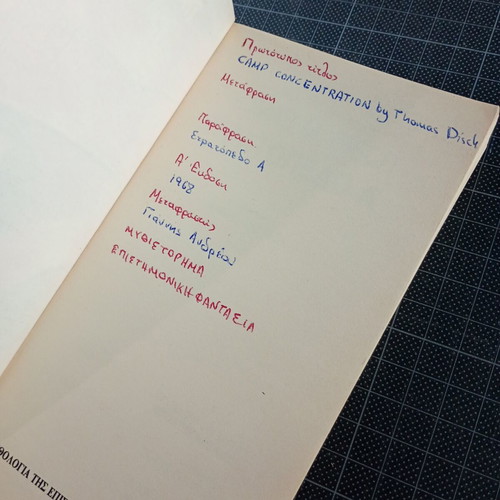 Πρωτότυπος τίτλος
CAMP CONCENTRATION by Thomas Disch
Μετάφραση
Παράφραση
Στρατόπεδο Α
Α' Έκδοση
1968
Μεταφραστής
Γιάννης Ανδρέου
ΜΥΘΙΣΤΟΡΗΜΑ
ΕΠΙΣΤΗΜΟΝΙΚΗ ΦΑΝΤΑΣΙΑ
ΘΟΛΟΓΙΑ ΤΗΣ ΕΠΙΣ